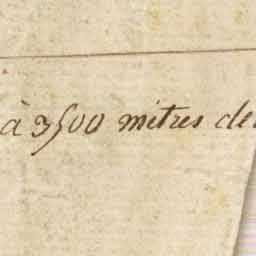 à 3500 mitres de